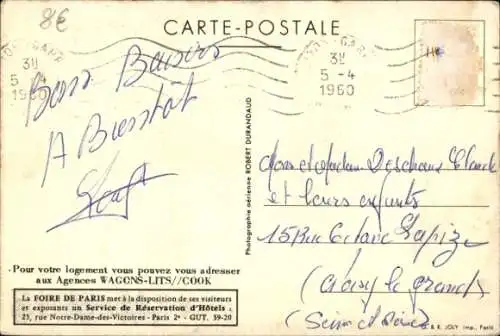 8€
CARTE-POSTALE
3H
5 - 4
1960
3H
5 - 4
1960
Bons Baisers
A Bientôt
Photographie aérienne ROBERT DURANDAUD
Monsieur et Madame Deschaux Claude
et leurs enfants
15 Rue Octave Lapize
Noisy le grand
(Seine et Oise)
Pour votre logement vous pouvez vous adresser
aux Agences WAGONS-LITS//COOK
La FOIRE DE PARIS met à la disposition de ses visiteurs
et exposants un Service de Réservation d'Hôtels :
23, rue Notre-Dame-des-Victoires - Paris 2e - GUT. 39-20
& R. JOLY Imp., Paris